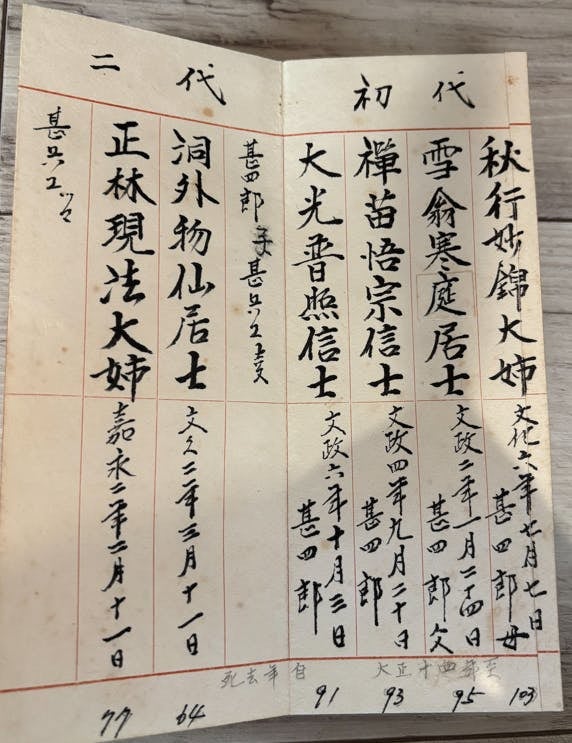 初代
秋行妙錦大姉
文化六年七月七日
甚四郎母
雪翁寒庭居士
文政二年一月二十四日
甚四郎父
禪苗悟宗信士
文政四年九月二十日
甚四郎
大光普照信士
文政六年十月三日
甚四郎
二代
甚四郎子甚兵エ
洞外物仙居士
文久二年三月十一日
正林現法大姉
嘉永二年二月十一日
甚兵エ
死去年自
大正十四年至
103
95
93
91
64
77